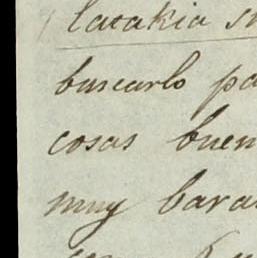 latakia
buscarlo pa
cosas buen
muy bara